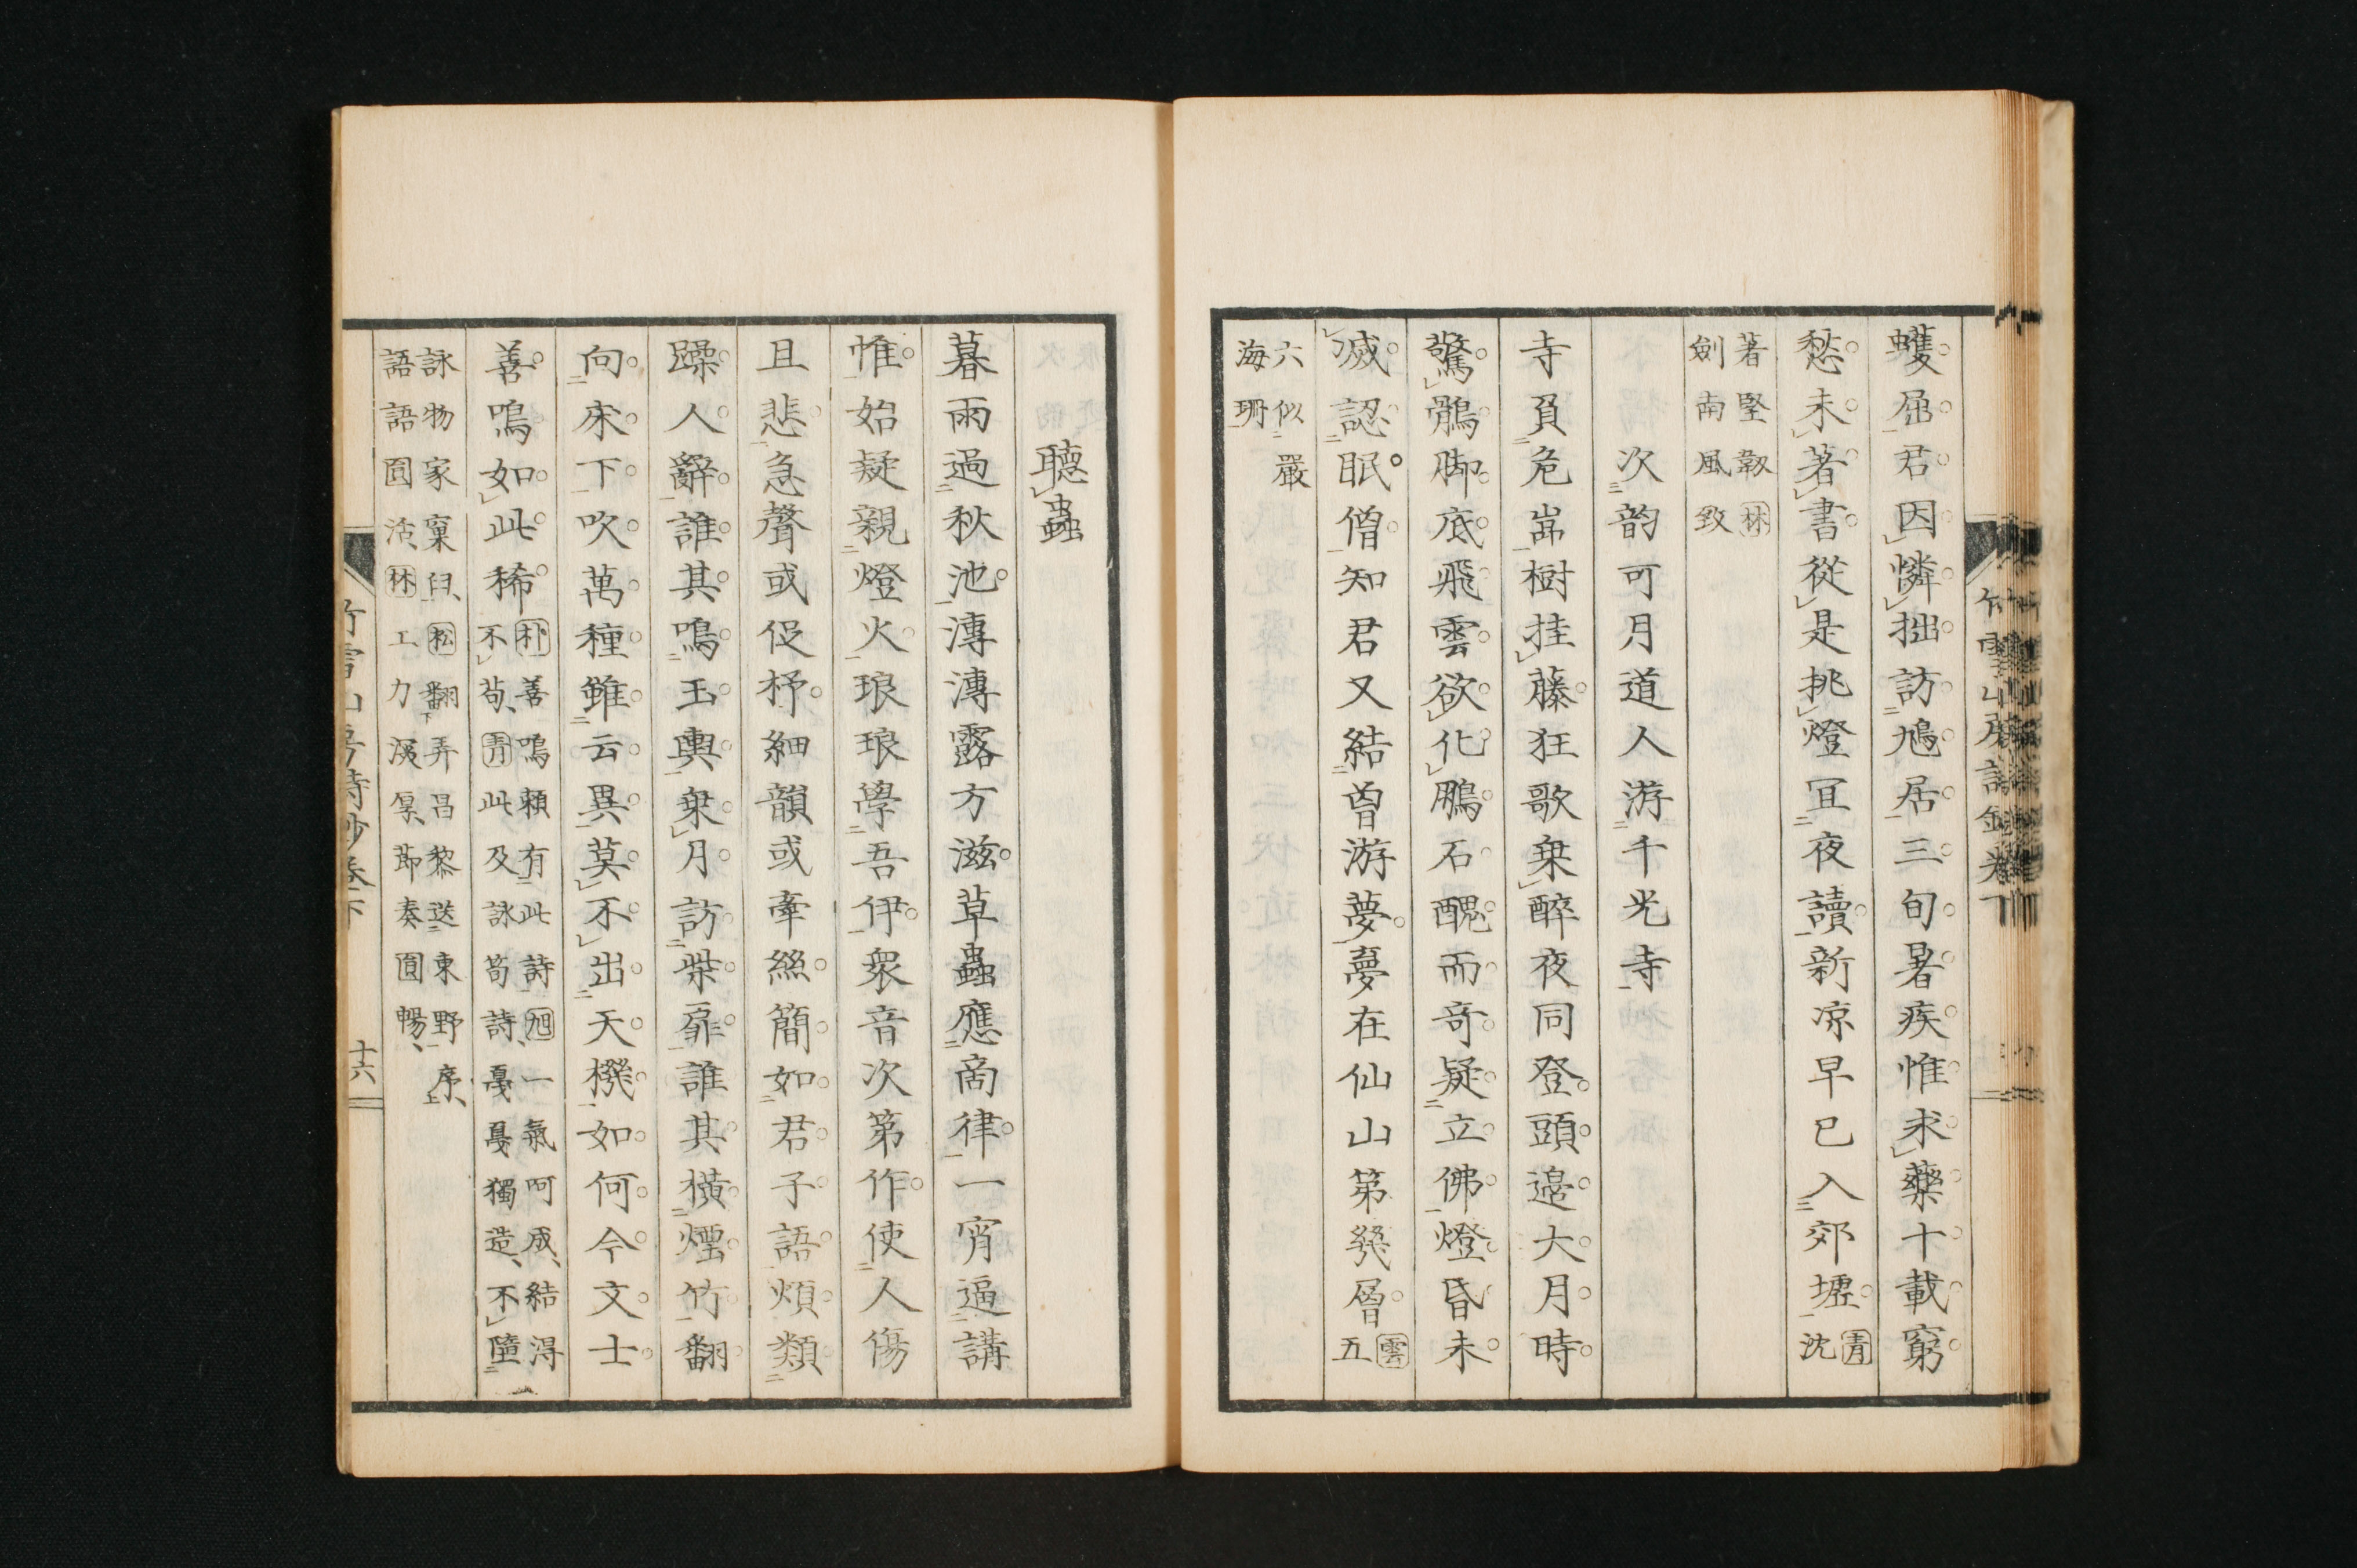 蠖屈君因憐拙訪鳩居三旬暑疾惟求藥十載窮
愁未著書從是挑燈冝夜讀新凉早已入郊墟青沈
著堅靱林
劍南風致
次韵可月道人游千光寺
寺負危嵓樹挂藤狂歌椉醉夜同登頭邉大月時
驚鶻脚底飛雲欲化鵬石醜而奇疑立佛燈昏未
滅認眠僧知君又結曾游夢夢在仙山第幾層雲五
六似嚴
海珊
聽蟲
暮雨過秋池漙漙露方滋草蟲應商律一宵逼講
惟始疑親燈火琅琅學吾伊衆音次第作使人傷
且悲急聲或促杼細韻或牽絲簡如君子語煩類
躁人辭誰其鳴玉輿椉月訪柴扉誰其橫煙竹翻
向床下吹萬種雖云異莫不出天機如何今文士
善鳴如此稀
朴善鳴賴有此詩旭一氣呵成結得
不苟青此及詠筍詩戞戞獨造不墮
詠物家窠臼松翻弄昌黎送東野序
語語圓活林工力深厚節奏圓暢
竹雪山房詩鈔卷下
十六